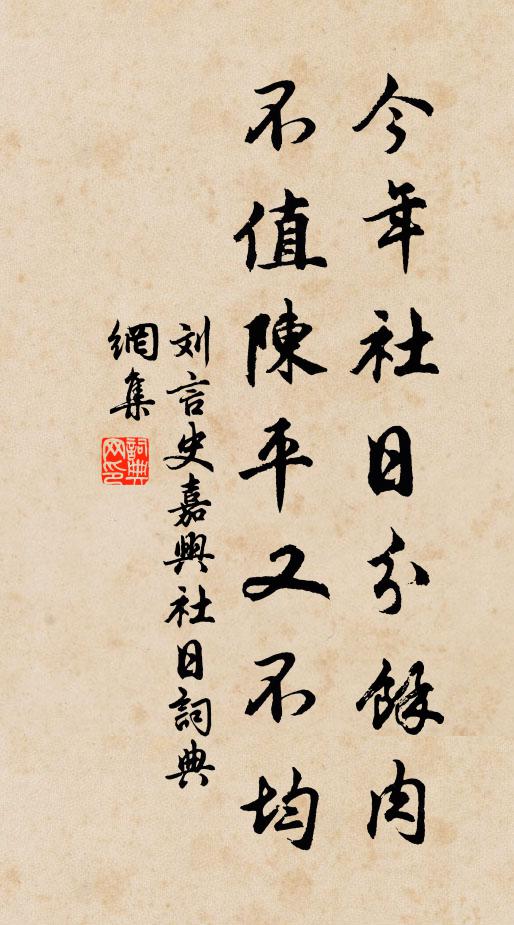 今年社日分餘肉
不值陳平又不均
刘言史嘉興社日詞典
網集
詞典网印